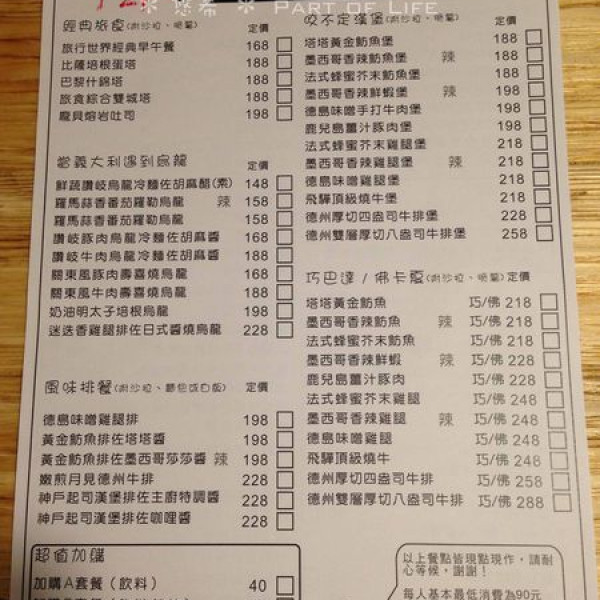 PART OF LIFE
經典旅食(附沙拉、脆薯) 定價
旅行世界經典早午餐 168
比薩培根蛋塔 188
巴黎什錦塔 188
旅食綜合雙城塔 188
龐貝熔岩吐司 198
當義大利遇到烏龍 定價
鮮蔬讚岐烏龍冷麵佐胡麻醋(素) 148
羅馬蒜香番茄羅勒烏龍 辣 158
羅馬蒜香番茄羅勒烏龍 158
讚岐豚肉烏龍冷麵佐胡麻醬 168
讚岐牛肉烏龍冷麵佐胡麻醬 188
關東風豚肉壽喜燒烏龍 168
關東風牛肉壽喜燒烏龍 188
奶油明太子培根烏龍 198
迷迭香雞腿排佐日式醬燒烏龍 228
風味排餐(附沙拉、麵包或白飯) 定價
德島味噌雞腿排 198
黃金魴魚排佐塔塔醬 198
黃金魴魚排佐墨西哥莎莎醬 辣 198
嫩煎月見德州牛排 228
神戶起司漢堡排佐主廚特調醬 228
神戶起司漢堡排佐咖哩醬 228
超值加購
加購A套餐（飲料） 40
咬不定漢堡(附沙拉、脆薯) 定價
塔塔黃金魴魚堡 188
墨西哥香辣魴魚堡 辣 188
法式蜂蜜芥末魴魚堡 188
墨西哥香辣鮮蝦堡 辣 198
德島味噌手打牛肉堡 198
鹿兒島薑汁豚肉堡 198
法式蜂蜜芥末雞腿堡 218
墨西哥香辣雞腿堡 辣 218
德島味噌雞腿堡 218
飛驒頂級燒牛堡 218
德州厚切四盎司牛排堡 228
德州雙層厚切八盎司牛排堡 258
巧巴達 / 佛卡夏(附沙拉、脆薯) 定價
塔塔黃金魴魚 巧/佛 218
墨西哥香辣魴魚 辣 巧/佛 218
法式蜂蜜芥末魴魚 巧/佛 218
墨西哥香辣鮮蝦 辣 巧/佛 228
鹿兒島薑汁豚肉 巧/佛 228
法式蜂蜜芥末雞腿 巧/佛 248
墨西哥香辣雞腿 辣 巧/佛 248
德島味噌雞腿 巧/佛 248
飛驒頂級燒牛 巧/佛 248
德州厚切四盎司牛排 巧/佛 258
德州雙層厚切八盎司牛排 巧/佛 288
以上餐點皆現點現作，請耐
心等候，謝謝！
每人基本最低消費為90元